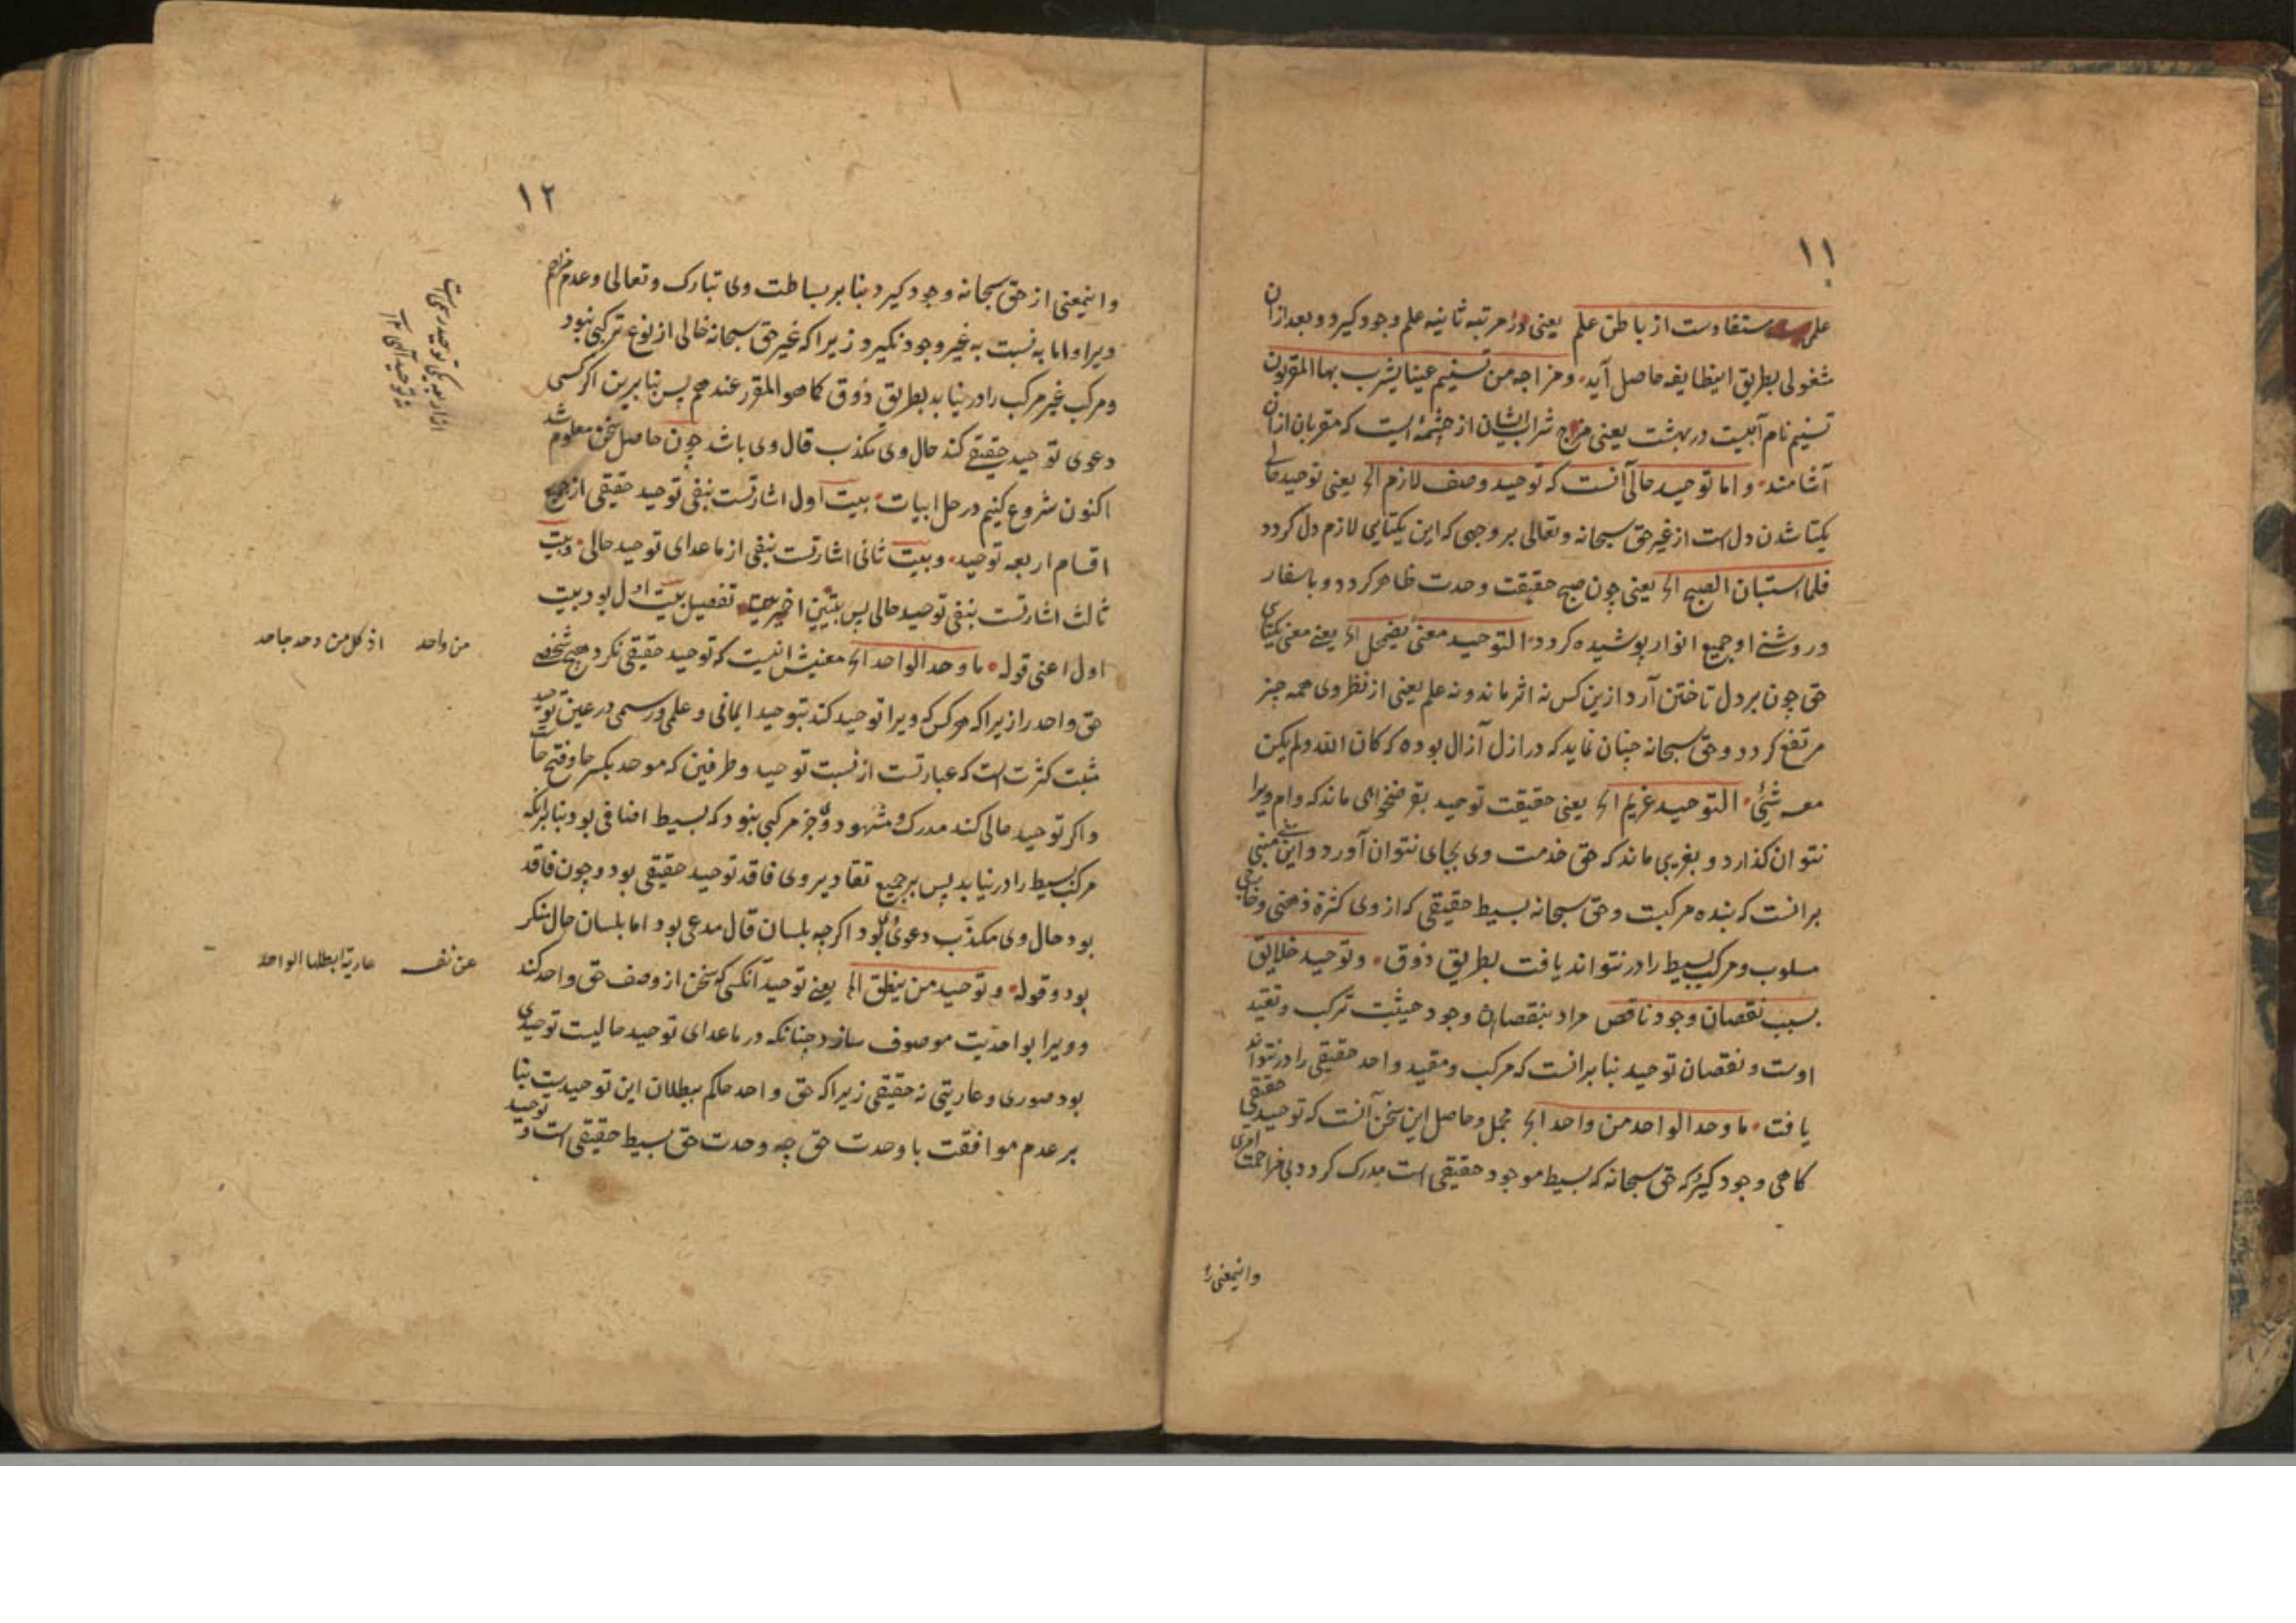 ۱۱
علمی مستفادست از باطن علم یعنی در مرتبه ثانیه علم وجود کیرد و بعد ازان
شغولی بطریق اینطایفه حاصل آید و مزاجه من تسنیم عینا یشرب بها المقربون
تسنیم نام آبیست در بهشت یعنی مزاج شراب ایشان از چشمه ایست که مقربان ازان
آشامند و اما توحید حالی آنست که توحید وصف لازم الخ یعنی توحید حالی
یکتا شدن دل است از غیر حق سبحانه و تعالی بر وجهی که این یکتایی لازم دل کردد
فلما استبان الصبح الخ یعنی چون صبح حقیقت وحدت ظاهر کردد و باسفار
و روشنی او جمیع انوار پوشیده کردد التوحید معنی یضمحل الخ یعنی معنی یکتای
حق چون بر دل تاختن آرد ازین کس نه اثر ماند و نه علم یعنی از نظر وی همه چیز
مرتفع کردد و حق سبحانه چنان نماید که در ازل آزال بوده که کان الله و لم یکن
معه شیئ التوحید غریم الخ یعنی حقیقت توحید بقرضخواهی ماند که وام ویرا
نتوان کذارد و بغریبی ماند که حق خدمت وی بجای نتوان آورد و این مبنی
برانست که بنده مرکبست و حق سبحانه بسیط حقیقی که از وی کثرة ذهنی و خارجی
مسلوب و مرکب بسیط را درنتواند یافت بطریق ذوق و توحید خلایق
بسبب نقصان وجود ناقص مراد بنقصان وجود حیثیت ترکب و تقید
اوست و نقصان توحید بنا برانست که مرکب و مقید واحد حقیقی را درنتواند
یافت ما وحد الواحد من واحد الخ مجمل و حاصل این سخن آنست که توحید حقیقی
کاهی وجود کیرد که حق سبحانه که بسیط موجود حقیقی است مدرک کردد بی مزاحمت امری
و اینمعنی را
۱۲
و اینمعنی از حق سبحانه وجود کیرد بنا بر بساطت وی تبارک و تعالی و عدم مزاحم
ویرا و اما به نسبت به غیر وجود نکیرد زیرا که غیر حق سبحانه خالی از نوع ترکبی نبود
و مرکب غیر مرکب را درنیابد بطریق ذوق کما هو المقرر عندهم پس بنا برین اکر کسی
دعوی توحید حقیقی کند حال وی مکذب قال وی باشد چون حاصل سخن معلوم شد
اکنون شروع کنیم در حل ابیات بیت اول اشارتست بنفی توحید حقیقی از جمیع
اقسام اربعه توحید و بیت ثانی اشارتست بنفی از ماعدای توحید حالی و بیت
ثالث اشارتست بنفی توحید حالی پس بیتین اخیرین تفصیل بیت اول بود بیت
اول اعنی قوله ما وحد الواحد الخ معنیش اینست که توحید حقیقی نکرد هیچ شخصی
حق واحد را زیرا که هر کس که ویرا توحید کند بتوحید ایمانی و علمی و رسمی در عین توحید
مثبت کثرت است که عبارتست از نسبت توحید و طرفین که موحد بکسر حا و فتح حاست
و اکر توحید حالی کند مدرک و مشهود وی جز مرکبی نبود که بسیط اضافی بود بنا برانکه
مرکب بسیط را درنیابد پس بر جمیع تقادیر وی فاقد توحید حقیقی بود و چون فاقد
بود حال وی مکذب دعوی وی بود اکرچه بلسان قال مدعی بود اما بلسان حال منکر
بود و قوله و توحید من ینطق الخ یعنی توحید آنکسی که سخن از وصف حق واحد کند
و ویرا بواحدیت موصوف سازد چنانکه در ماعدای توحید حالیست توحیدی
بود صوری و عاریتی نه حقیقی زیرا که حق واحد حاکم ببطلان این توحیدست بنا
بر عدم موافقت با وحدت حق چه وحدت حق بسیط حقیقی است و توحید
من واحد اذ کل من وحده جاحد
عن نعته عاریة ابطلها الواحد